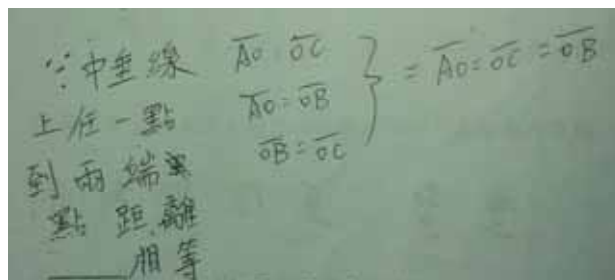 ∵中垂線
上任一點
到兩端
點距離
相等
AO=OC
AO=OB
OB=OC
} = AO=OC=OB